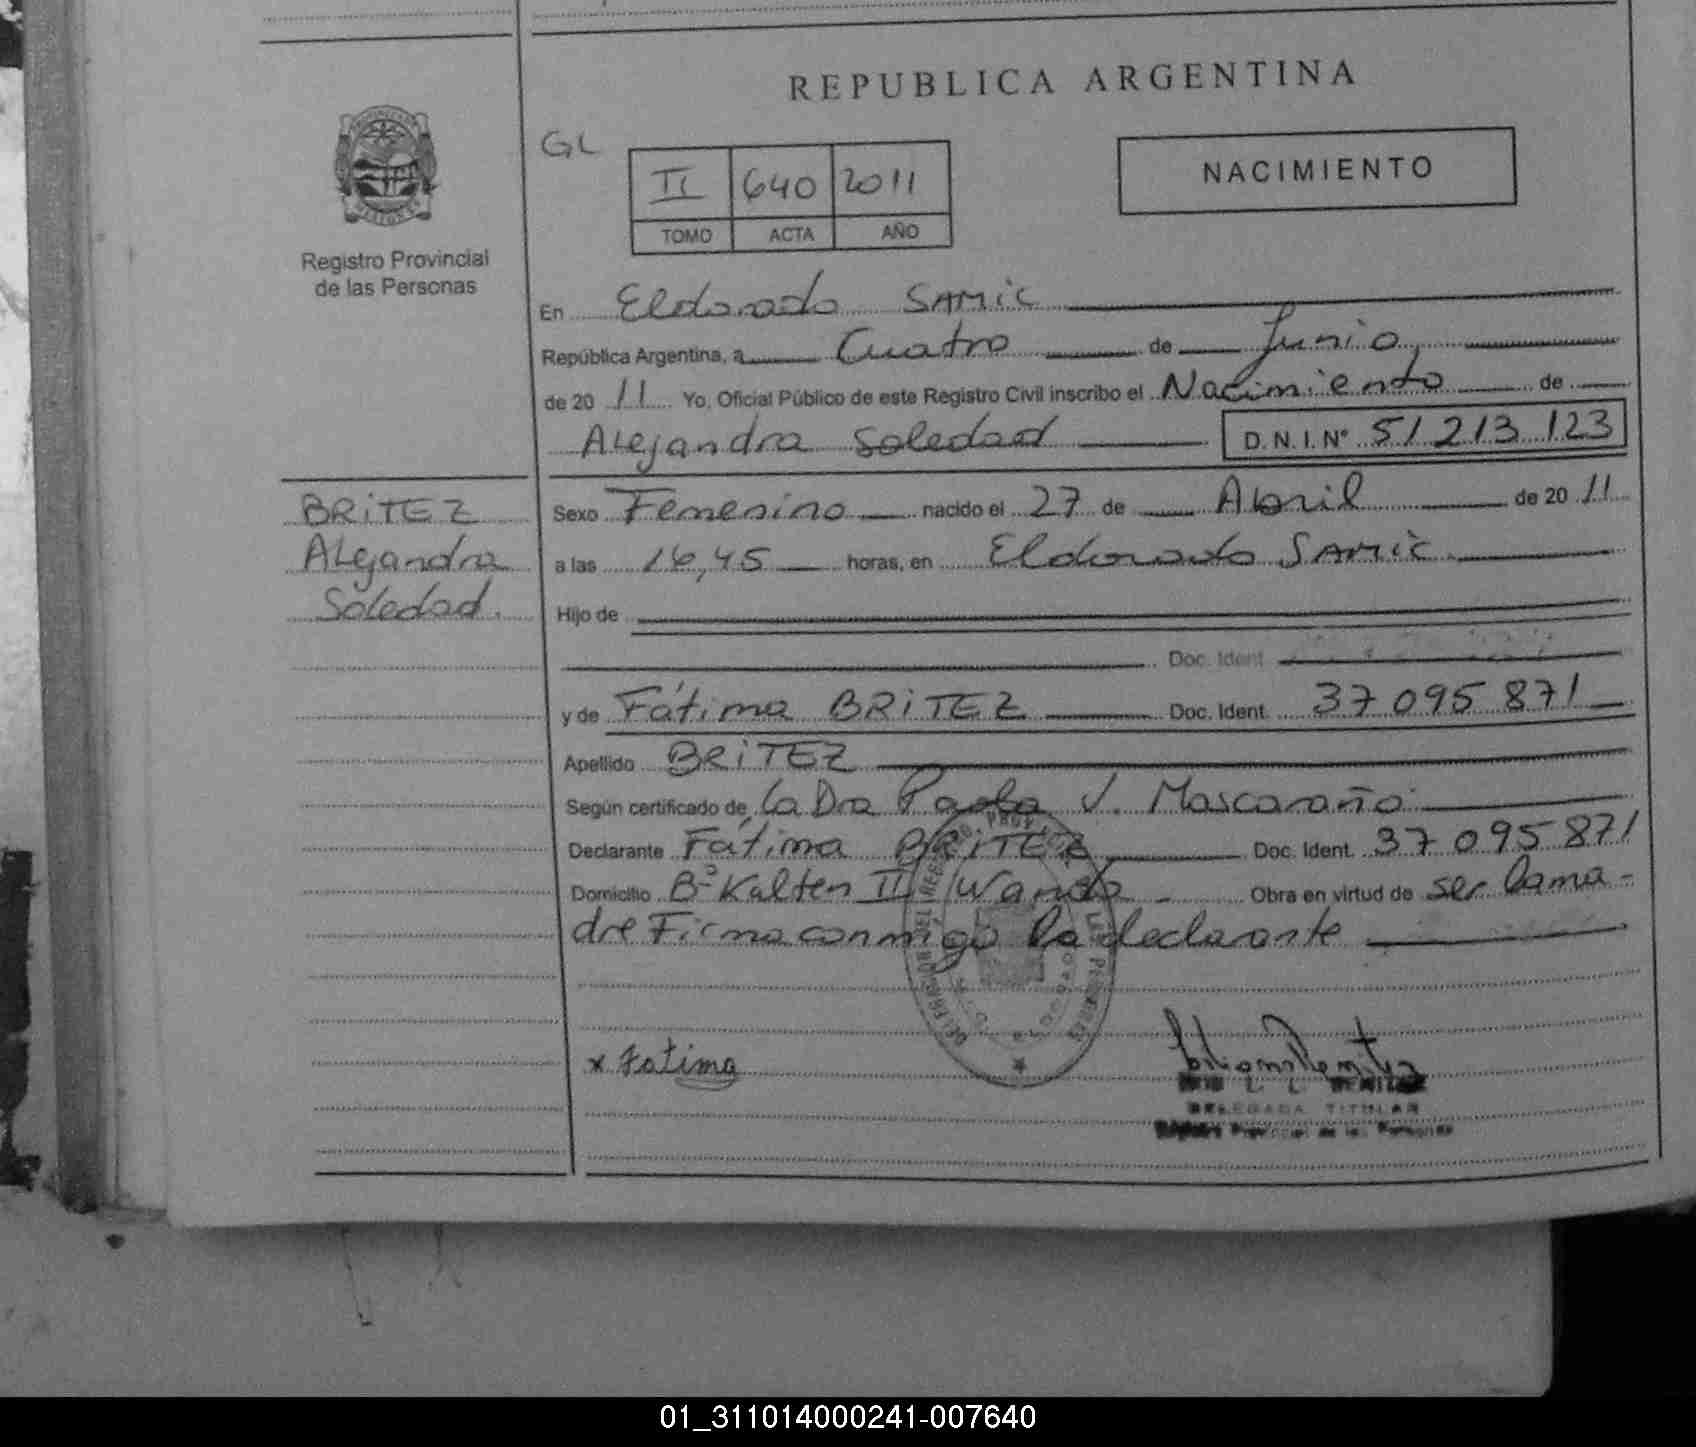 REPUBLICA ARGENTINA
GL
II 640 2011
TOMO ACTA AÑO
NACIMIENTO
Registro Provincial
de las Personas
En Eldorado SAMIC
República Argentina, a Cuatro de Junio,
de 20 11 Yo, Oficial Público de este Registro Civil inscribo el Nacimiento de
Alejandra Soledad D.N.I. Nº 51 213 123
BRITEZ
Alejandra
Soledad.
Sexo Femenino nacido el 27 de Abril de 20 11
a las 16,45 horas, en Eldorado SAMIC
Hijo de
Doc. Ident
y de Fátima BRITEZ Doc. Ident. 37 095 871
Apellido BRITEZ
Según certificado de La Dra Paola V. Mascaraño
Declarante Fátima BRITEZ Doc. Ident. 37 095 871
Domicilio Bº Kalten II Wanda Obra en virtud de ser la ma-
dre Firma conmigo la declarante
x Fatima
DELEGADA TITULAR
Registro Provincial de las Personas
01_311014000241-007640